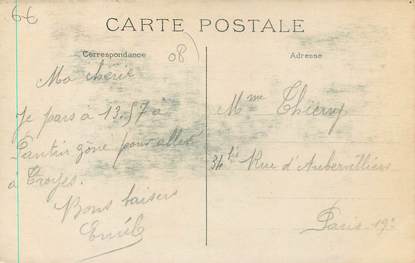 66
CARTE POSTALE
Correspondance
08
Adresse
Ma chérie
Je pars à 13.57 à
Pantin gône pour aller
à Troyes.
Bons baisers
Emile
Mme Thierry
34 bis Rue d'Aubervilliers
Paris 19e